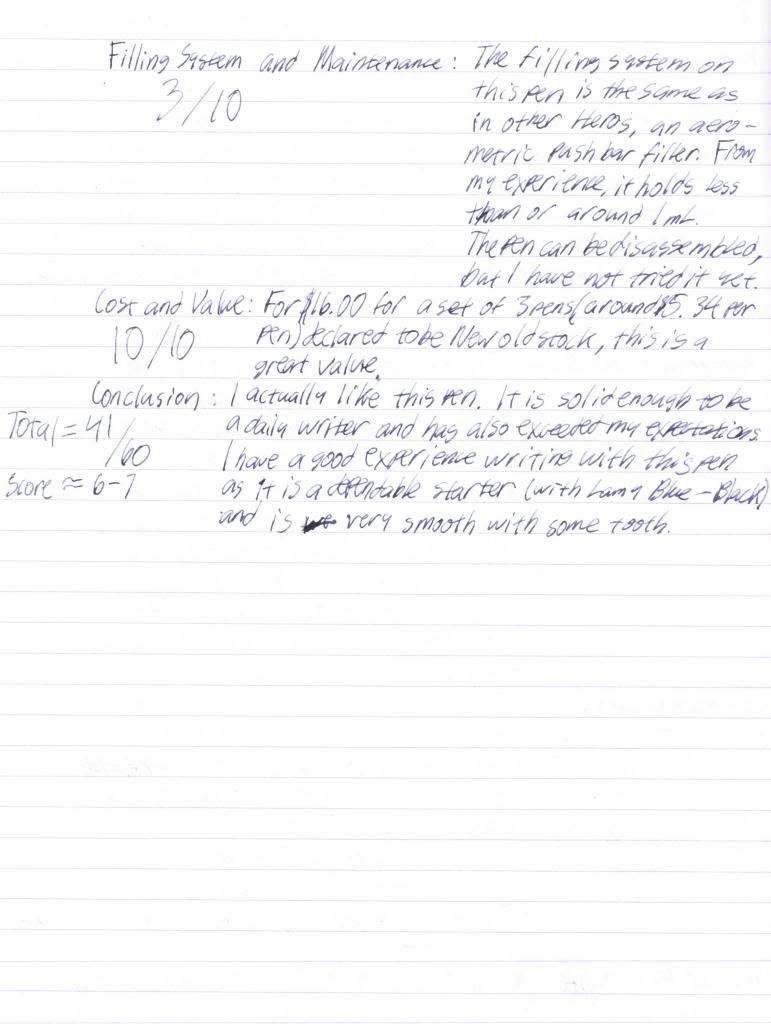 Filling System and Maintenance: The filling system on
3/10
this pen is the same as
in other Heros, an aero-
metric push bar filler. From
my experience, it holds less
than or around 1mL.
The pen can be disassembled,
but I have not tried it yet.
Cost and Value: For $16.00 for a set of 3 pens (around $5.34 per
10/10
pen) declared to be New old stock, this is a
great value.
Conclusion: I actually like this pen. It is solid enough to be
Total = 41/60
a daily writer and has also exceeded my expectations.
I have a good experience writing with this pen
Score ≈ 6-7
as it is a dependable starter (with Lamy Blue-Black)
and is very smooth with some tooth.